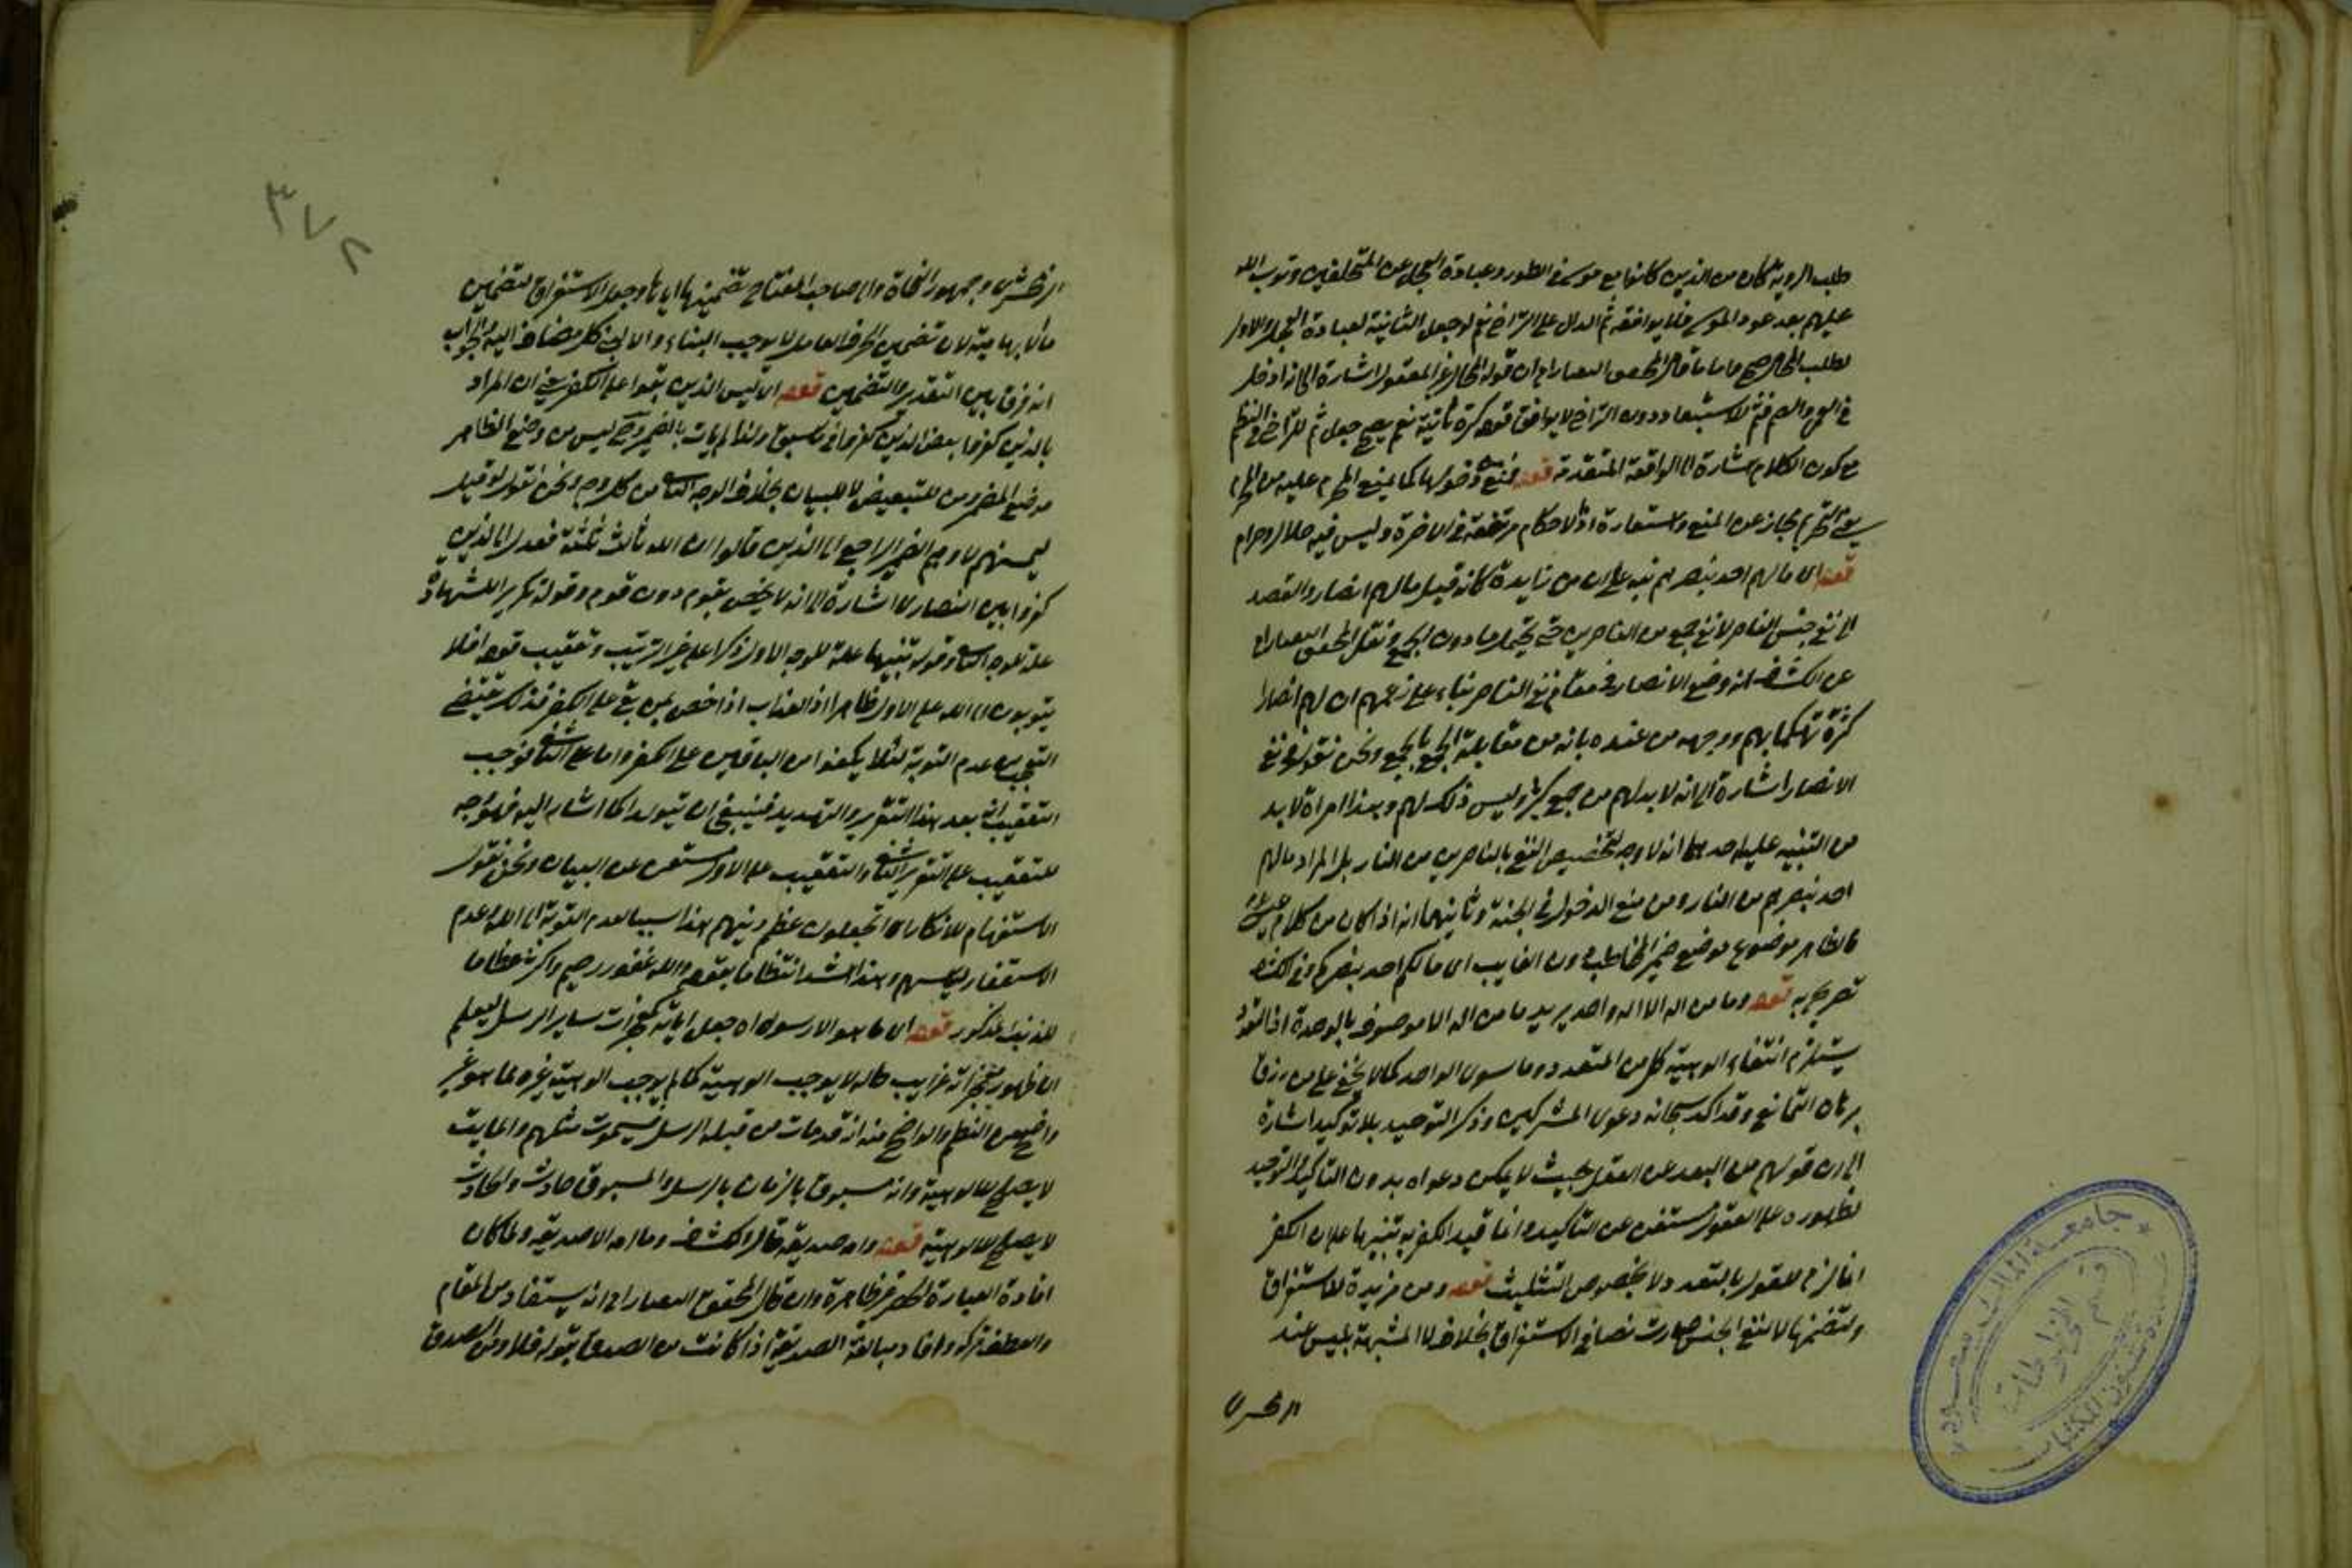 طلب الروية كان من الذين كانوا مع موسى في الطور وعبادة العجل عن المتخلفين وتوب الله
عليهم بعد عود موسى فلا يوافقه ثم الدال على التراخي نعم لو جعل الثانية لعبادة العجل والاول
لطلب المحال صح واما ما قال المحقق التفتازاني ان قوله المحال غير المعقول اشارة الى
في العمى والصمم فثم للاستبعاد دون التراخي لا يوافق قوله كرة ثانية نعم يصح جعل ثم للتراخي في النظم
مع كون الكلام اشارة الى الواقعة المتقدمة قوله يمنع دخولها كما يمنع المحرم عليه من المحرم
يعني التحريم مجاز عن المنع واستعارة اذ لا حكام مرتفعة في الاخرة وليس فيه حلال وحرام
قوله اى مالهم احد ينصرهم نبه على ان من زايدة كانه قيل مالهم انصار والقصد
الى نفي جنس الناصر لا نفي جمع من الناصرين حتى يحتمل ما دون الجمع ونقل المحقق التفتازاني
عن الكشف انه وضع الانصار في مقام نفي الناصر بناء على زعمهم ان لهم انصارا
كثرة تهكما بهم ووجهه من عنده بانه من مقابلة الجمع بالجمع ونحن نقول في نفي
الانصار اشارة الى انه لا بد لهم من جمع كثير وليس ذلك لهم وههنا امران لا بد
من التنبيه عليه احدهما انه لا وجه لتخصيص النفي بالناصرين من النار بل المراد مالهم
احد ينصرهم من النار ومن منع الدخول في الجنة وثانيهما انه اذا كان من كلام عيسى
فالظاهر موضوع موضع ضمير المخاطب دون الغايب اى ما لكم احد ينصركم وفي الكشاف
تصريح به قوله وما من اله الا اله واحد يريد ما من اله الا موصوف بالوحدة اذ التعدد
يستلزم انتفاء الوهية كل من المتعدد وما سوى الواحد كما لا يخفى على من رزق
برهان التمانع وقد اكد سبحانه دعوى المشركين وذكر التوحيد بلا توكيد اشارة
الى ان قولهم من البعد عن العقل بحيث لا يمكن دعواه بدون التاكيد والتوحيد
لظهوره على العقول مستغن عن التاكيد وانما قيد الكفر به تنبيها على ان الكفر
انما لزم للقول بالتعدد ولا بخصوص التثليث قوله ومن مزيدة للاستغراق
ولتضمنها لا لنفي الجنس صارت نصا في الاستغراق بخلاف لا المشبهة بليس عند
الزمخشرى
الزمخشرى وجمهور النحاة واما صاحب المفتاح تضمينها اياها وجعل الاستغراق لتضمين
لان تضمين الحرف العامل لا يوجب البناء والا لبني كل مضاف اليه والجواب
انه فرق بين التقدير والتضمين قوله اى ليس الذين بقوا على الكفر يعني ان المراد
بالذين كفروا بعض الذين كفروا في ما سبق ولذا لم يات بالضمير وليس من وضع الظاهر
موضع المضمر ومن للتبعيض لا للبيان بخلاف الوجه الثاني من كل وجه ونحن نقول لو قيل
ليمسنهم لاوهم الضمير الراجع الى الذين قالوا ان الله ثالث ثلثة فعدل الى الذين
كفروا بين النصارى اشارة الى انه لا يختص بقوم دون قوم وقوله تكريرا للشهادة
علة للوجه الثاني وقوله تنبيها علة للوجه الاول ذكرا على غير الترتيب وتعقيب قوله افلا
يتوبون الى الله على الاول ظاهر اذ العذاب اذا خص بمن بقي على الكفر فذلك يقتضي
التعجب من عدم التوبة لئلا يكونوا من الباقين على الكفر واما على الثاني فوجب
التعقيب انه بعد هذا التقرير والتهديد فينبغي ان يتوبوا كما اشار اليه فهو وجه
للتعقيب على التقرير الثاني والتعقيب على الاول مستغن عن البيان ونحن نقول
الاستفهام للانكار اى اتجعلون عظم دينهم هذا سببا لعدم التوبة الى الله وعدم
الاستغفار وهذا اشد انتظاما بقوله والله غفور رحيم واكثر
قوله اى ما هو الا رسول اى جعل اياته كمعجزات ساير الرسل ليعلم
ان ظهور معجزاته غرايب حاله لا يوجب الوهية كما لم يوجب الوهية غيره لما هو غير
واضح من النظم والواضح منه انه قد مات من قبله الرسل فيموت مثلهم والمايت
لا يصلح للالوهية وانه مسبوق بالزمان بالرسل والمسبوق حادث والحادث
لا يصلح للالوهية قوله وامه صديقة قال الكشاف وما امه الا صديقة ولما كان
افادة العبارة الحصر غير ظاهرة وان قال المحقق التفتازاني انه يستفاد من المقام
والعطف تركه وافاد مبالغة الصديقة اذا كانت من الصدق بقوله
٣٧٨
جامعة الملك سعود
قسم المخطوطات
عمادة شئون المكتبات